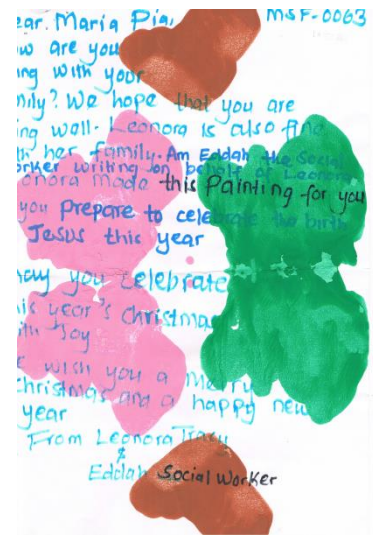 ear. Maria Pia, MSF-0063
ow are you
ing with your
mily? We hope that you are
ing well. Leonora is also fine
th her family. Am Eddah the Social
orker writing on behalf of Leonora
eonora made this Painting for you
you Prepare to celebrate the birth
Jesus this year
may you celebrate
his year's Christmas
ith Joy
e wish you a Merry
Christmas and a happy new
year
From Leonora Tracy
&
Eddah Social Worker